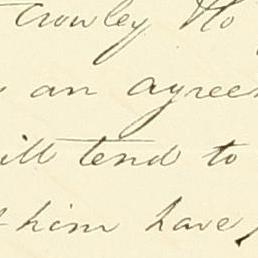 Crowley
an agree
tend to
him have